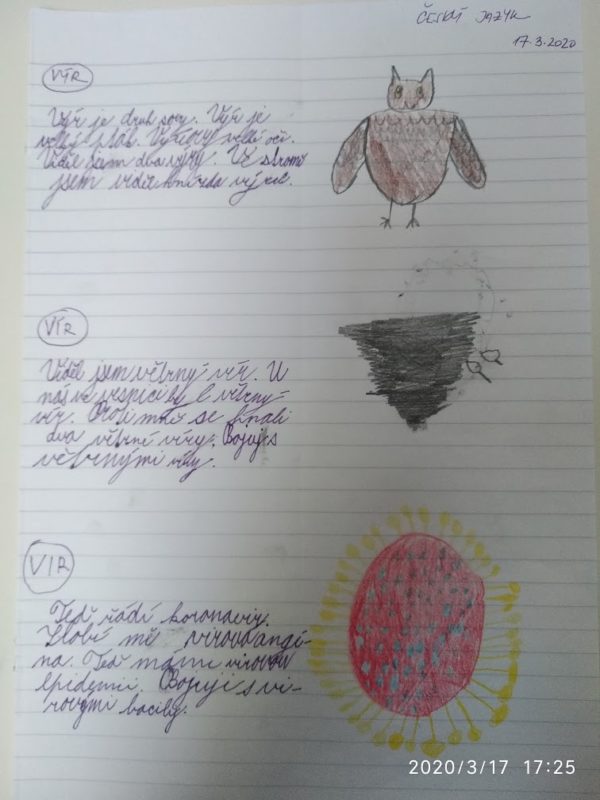 ČESKÝ JAZYK
17.3.2020
VÝR
Výr je druh sovy. Výr je
velký pták. Výr velké oči.
Viděl jsem dva výry. Ve stromě
jsem viděl hnízda výrů.
VÍR
Viděl jsem větrný vír. U
nás ve vesnici byl větrný
vír. Proti mně se hnali
dva větrné víry. Bojuji s
větrnými víry.
VIR
Teď řádí koronavir.
Zlobí mě virová angí-
na. Teď máme virovou
epidemii. Bojuji s vi-
rovými bacily.
2020/3/17 17:25